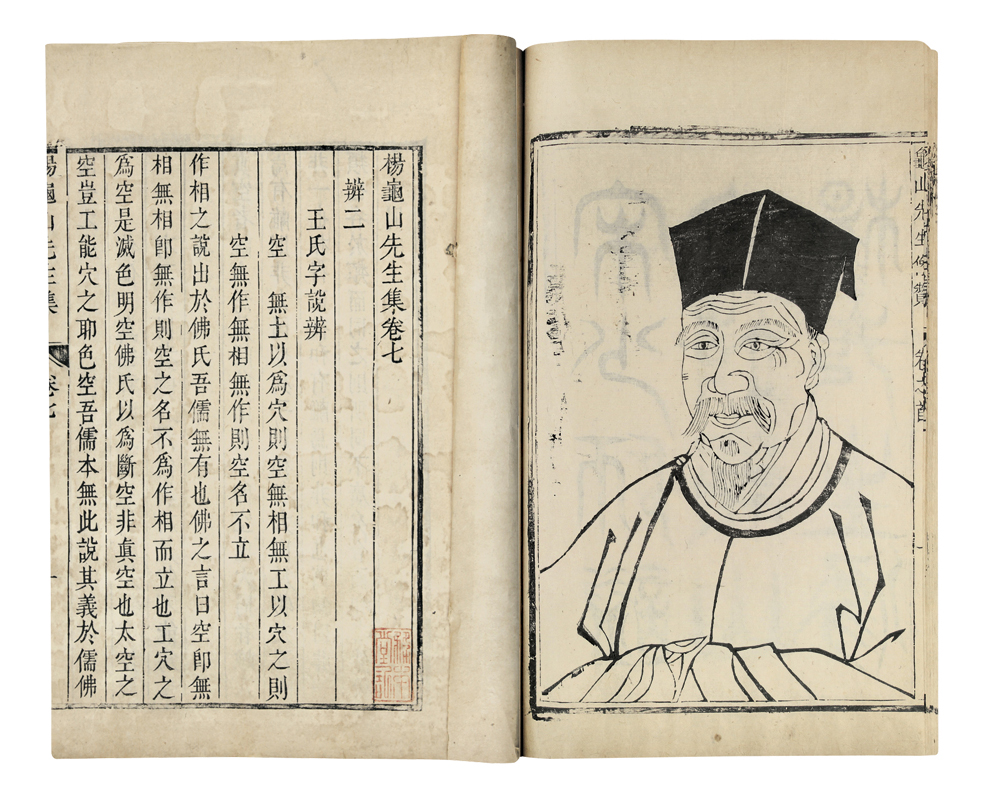 龜山先生像贊
卷之首
楊龜山先生集卷七
辨二
王氏字說辨
空 無土以爲穴則空無相無工以穴之則
空無作無相無作則空名不立
作相之說出於佛氏吾儒無有也佛之言曰空卽無
相無相卽無作則空之名不爲作相而立也工穴之
爲空是滅色明空佛氏以爲斷空非眞空也太空之
空豈工能穴之耶色空吾儒本無此說其義於儒佛
楊龜山先生集
卷七
一